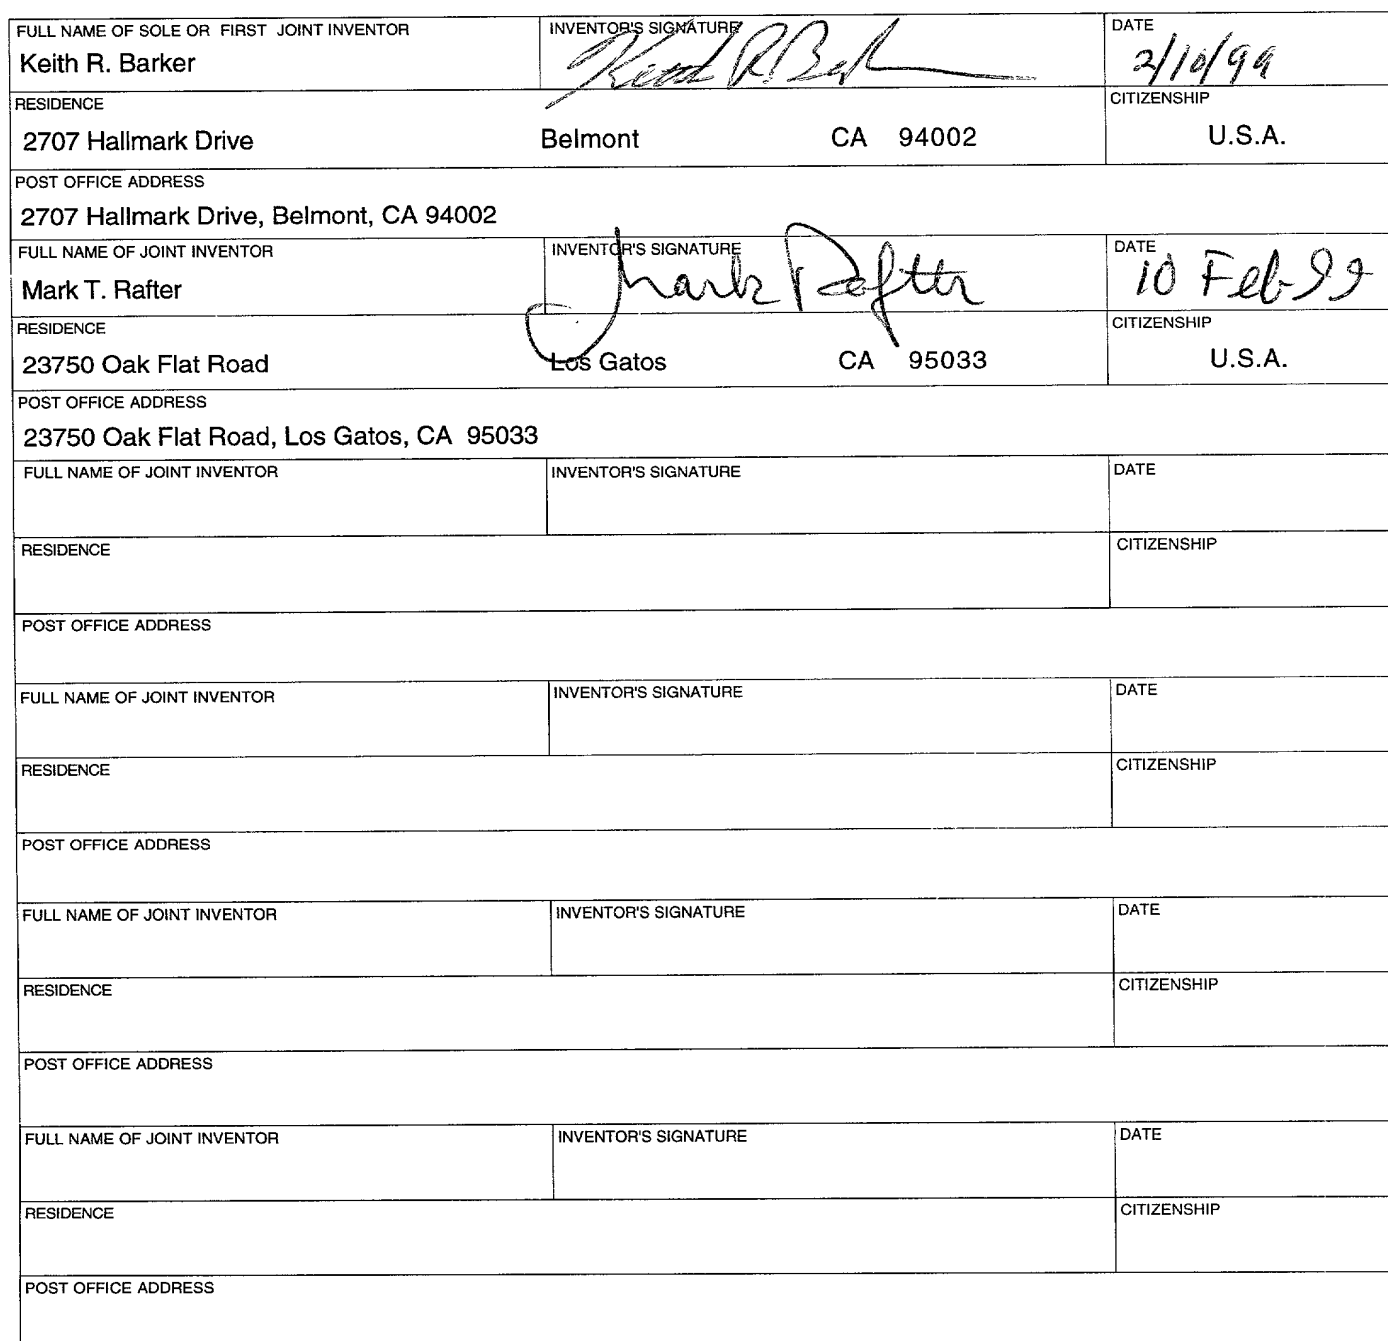 FULL NAME OF SOLE OR FIRST JOINT INVENTOR INVENTOR'S SIGNATURE DATE
Keith R. Barker Keith R. Barker 2/10/99
RESIDENCE CITIZENSHIP
2707 Hallmark Drive Belmont CA 94002 U.S.A.
POST OFFICE ADDRESS
2707 Hallmark Drive, Belmont, CA 94002
FULL NAME OF JOINT INVENTOR INVENTOR'S SIGNATURE DATE
Mark T. Rafter Mark Rafter 10 Feb 99
RESIDENCE CITIZENSHIP
23750 Oak Flat Road Los Gatos CA 95033 U.S.A.
POST OFFICE ADDRESS
23750 Oak Flat Road, Los Gatos, CA 95033
FULL NAME OF JOINT INVENTOR INVENTOR'S SIGNATURE DATE
RESIDENCE CITIZENSHIP
POST OFFICE ADDRESS
FULL NAME OF JOINT INVENTOR INVENTOR'S SIGNATURE DATE
RESIDENCE CITIZENSHIP
POST OFFICE ADDRESS
FULL NAME OF JOINT INVENTOR INVENTOR'S SIGNATURE DATE
RESIDENCE CITIZENSHIP
POST OFFICE ADDRESS
FULL NAME OF JOINT INVENTOR INVENTOR'S SIGNATURE DATE
RESIDENCE CITIZENSHIP
POST OFFICE ADDRESS